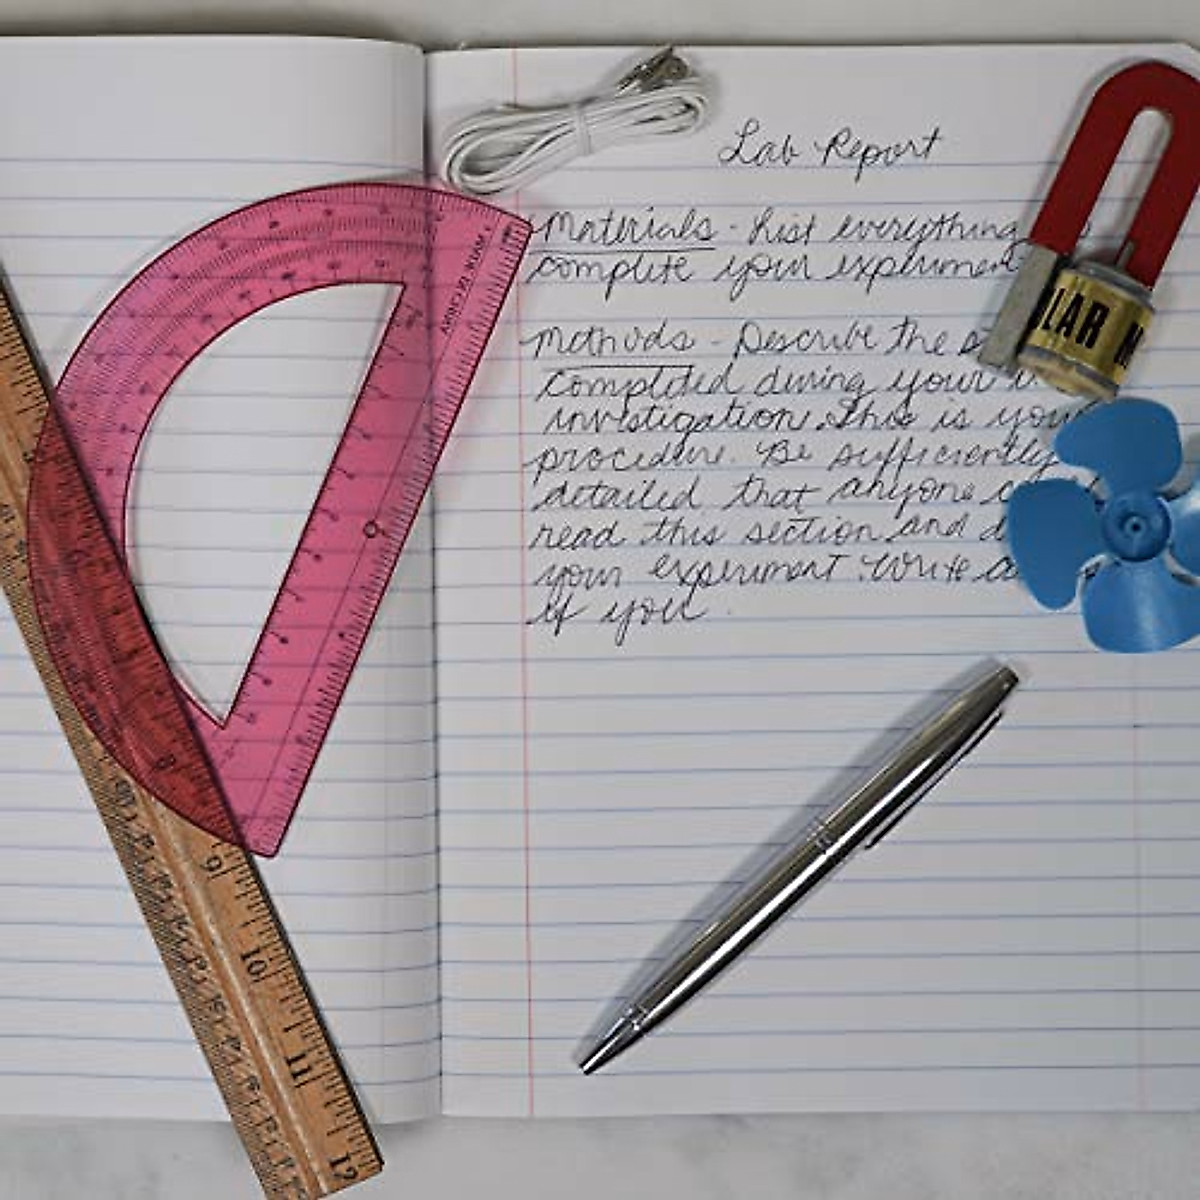 Lab Report
Materials - List everything
complete your experiment
Methods - Describe the
completed during your
investigation. This is your
procedure. Be sufficiently
detailed that anyone
read this section and
your experiment. Write
if you
LAR M
9
10
11
12